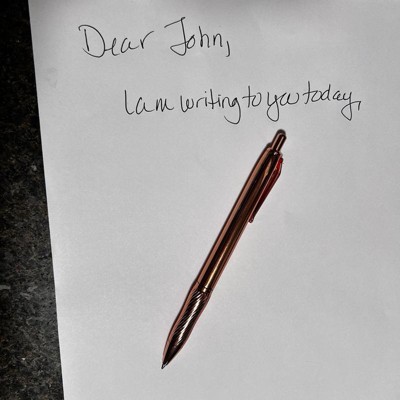 Dear John,
I am writing to you today,